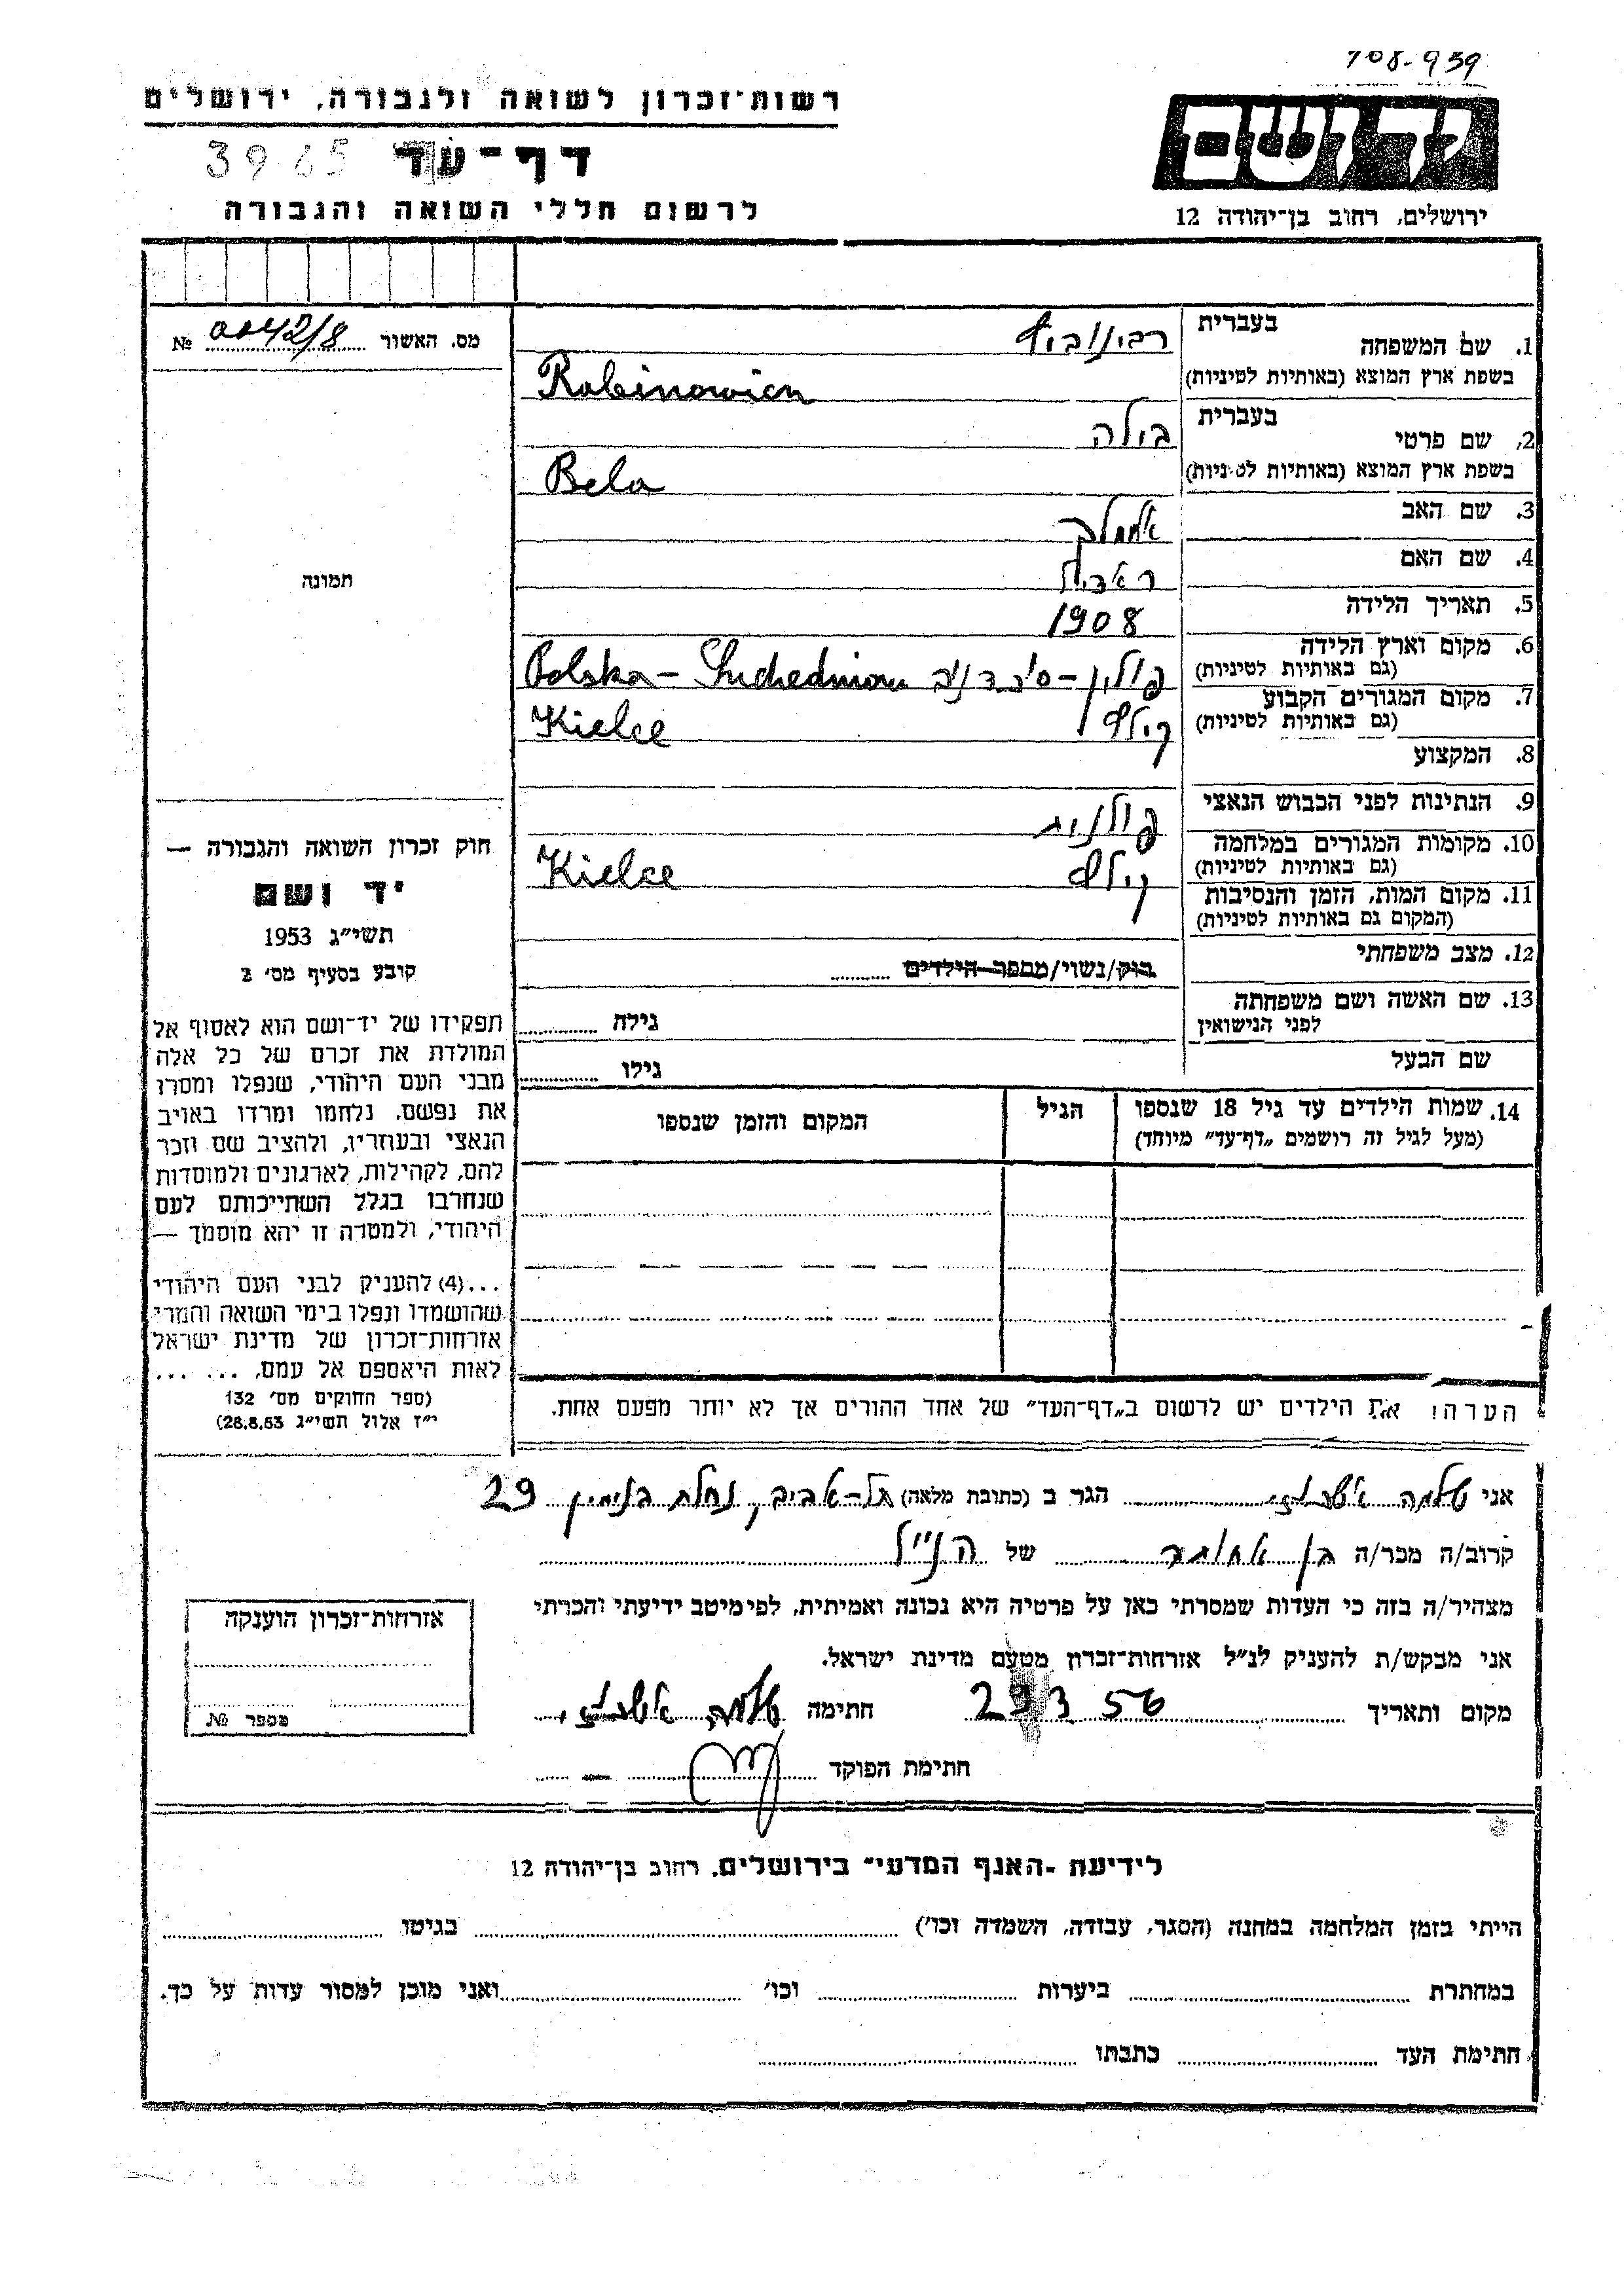 708-939
רשות־זכרון לשואה ולגבורה, ירושלים
יד ושם
דף־עד 3965
לרשום חללי השואה והגבורה
ירושלים, רחוב בן־יהודה 12
1. שם המשפחה בעברית רבינוביץ
מס. האשור 0042/8 №
בשפת ארץ המוצא (באותיות לטיניות) Rabinowicn
2. שם פרטי בעברית בילה
בשפת ארץ המוצא (באותיות לטיניות) Bela
3. שם האב
4. שם האם
תמונה
5. תאריך הלידה 1908
6. מקום וארץ הלידה (גם באותיות לטיניות) פולין - Polska - Suchedniow
7. מקום המגורים הקבוע (גם באותיות לטיניות) קילץ Kielce
8. המקצוע
9. הנתינות לפני הכבוש הנאצי פולנית
10. מקומות המגורים במלחמה (גם באותיות לטיניות) קילץ Kielce
11. מקום המות, הזמן והנסיבות (המקום גם באותיות לטיניות)
12. מצב משפחתי רוק/נשוי/מספר הילדים
13. שם האשה ושם משפחתה לפני הנישואין גילה
שם הבעל גילו
14. שמות הילדים עד גיל 18 שנספו הגיל המקום והזמן שנספו
(מעל לגיל זה רושמים „דף־עד” מיוחד)
חוק זכרון השואה והגבורה —
יד ושם
תשי״ג 1953
קובע בסעיף מס׳ 2
תפקידו של יד־ושם הוא לאסוף אל
המולדת את זכרם של כל אלה
מבני העם היהודי, שנפלו ומסרו
את נפשם, נלחמו ומרדו באויב
הנאצי ובעוזריו, ולהציב שם וזכר
להם, לקהילות, לארגונים ולמוסדות
שנחרבו בגלל השתייכותם לעם
היהודי, ולמטרה זו יהא מוסמך —
...(4) להעניק לבני העם היהודי
שהושמדו ונפלו בימי השואה והמרי
אזרחות־זכרון של מדינת ישראל
לאות היאספם אל עמם. ... ...
(ספר החוקים מס׳ 132
י״ז אלול תשי״ג 28.8.53)
הערה: את הילדים יש לרשום ב„דף־העד” של אחד ההורים אך לא יותר מפעם אחת.
אני שלמה הגר ב (כתובת מלאה) תל-אביב, נחלת בנימין 29
קרוב/ה מכר/ה בן אחותה של הנ״ל
מצהיר/ה בזה כי העדות שמסרתי כאן על פרטיה היא נכונה ואמיתית, לפי מיטב ידיעתי והכרתי
אני מבקש/ת להעניק לנ״ל אזרחות־זכרון מטעם מדינת ישראל.
מקום ותאריך 29 3 56 חתימה שלמה
חתימת הפוקד
אזרחות־זכרון הוענקה
מספר №
לידיעת ־האגף המדעי־ בירושלים, רחוב בן־יהודה 12
הייתי בזמן המלחמה במחנה (הסגר, עבודה, השמדה וכו׳) בגיטו
במחתרת ביערות וכו׳ ואני מוכן למסור עדות על כך.
חתימת העד כתבתו